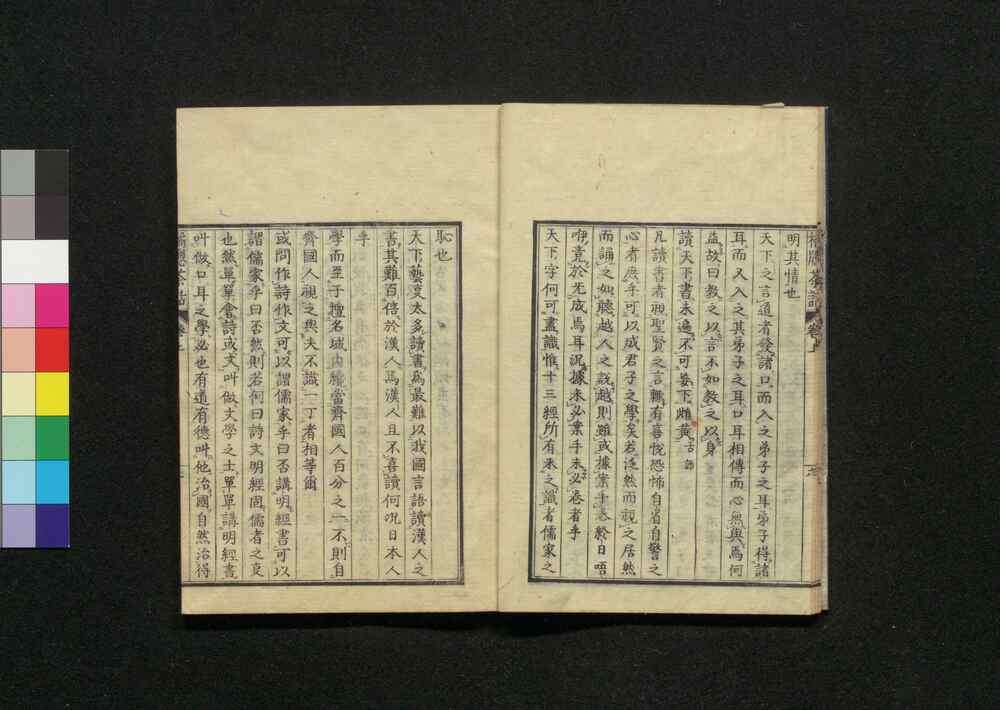 明其情也
天下之言道者發諸口而入之弟子之耳弟子得諸
耳而又入之其弟子之耳口耳相傳而心無與焉何
益故曰教之以言不如教之以身
讀天下書未遍不可妄下雌黄古語
凡讀書者視聖賢之言輒有喜悅恐怖自省自警之
心者庶乎可以成君子之學矣若泛然而視之居然
而誦之如聽越人之説越則雖或據業手卷終日唔
咿竟於先成焉耳況據未必業手未必卷者乎
天下字何可盡識惟十三經所有未之識者儒家之
恥也
天下藝麦太多讀書爲最難以我國言語讀漢人之
書其難百倍於漢人爲漢人且不喜讀何況日本人
乎
學而至于擅名域内權當齊國人百分之一不則自
齊國人視之與夫不識一丁者相等爾
或問作詩作文可以謂儒家乎曰否講明經書可以
謂儒家乎曰否然則若何曰詩文明經固儒者之㕝
也然單單會詩或文叫做文學之士單單講明經書
叫做口耳之學必也有道有德叫他治國自然治得
橘牕茶話 卷之上